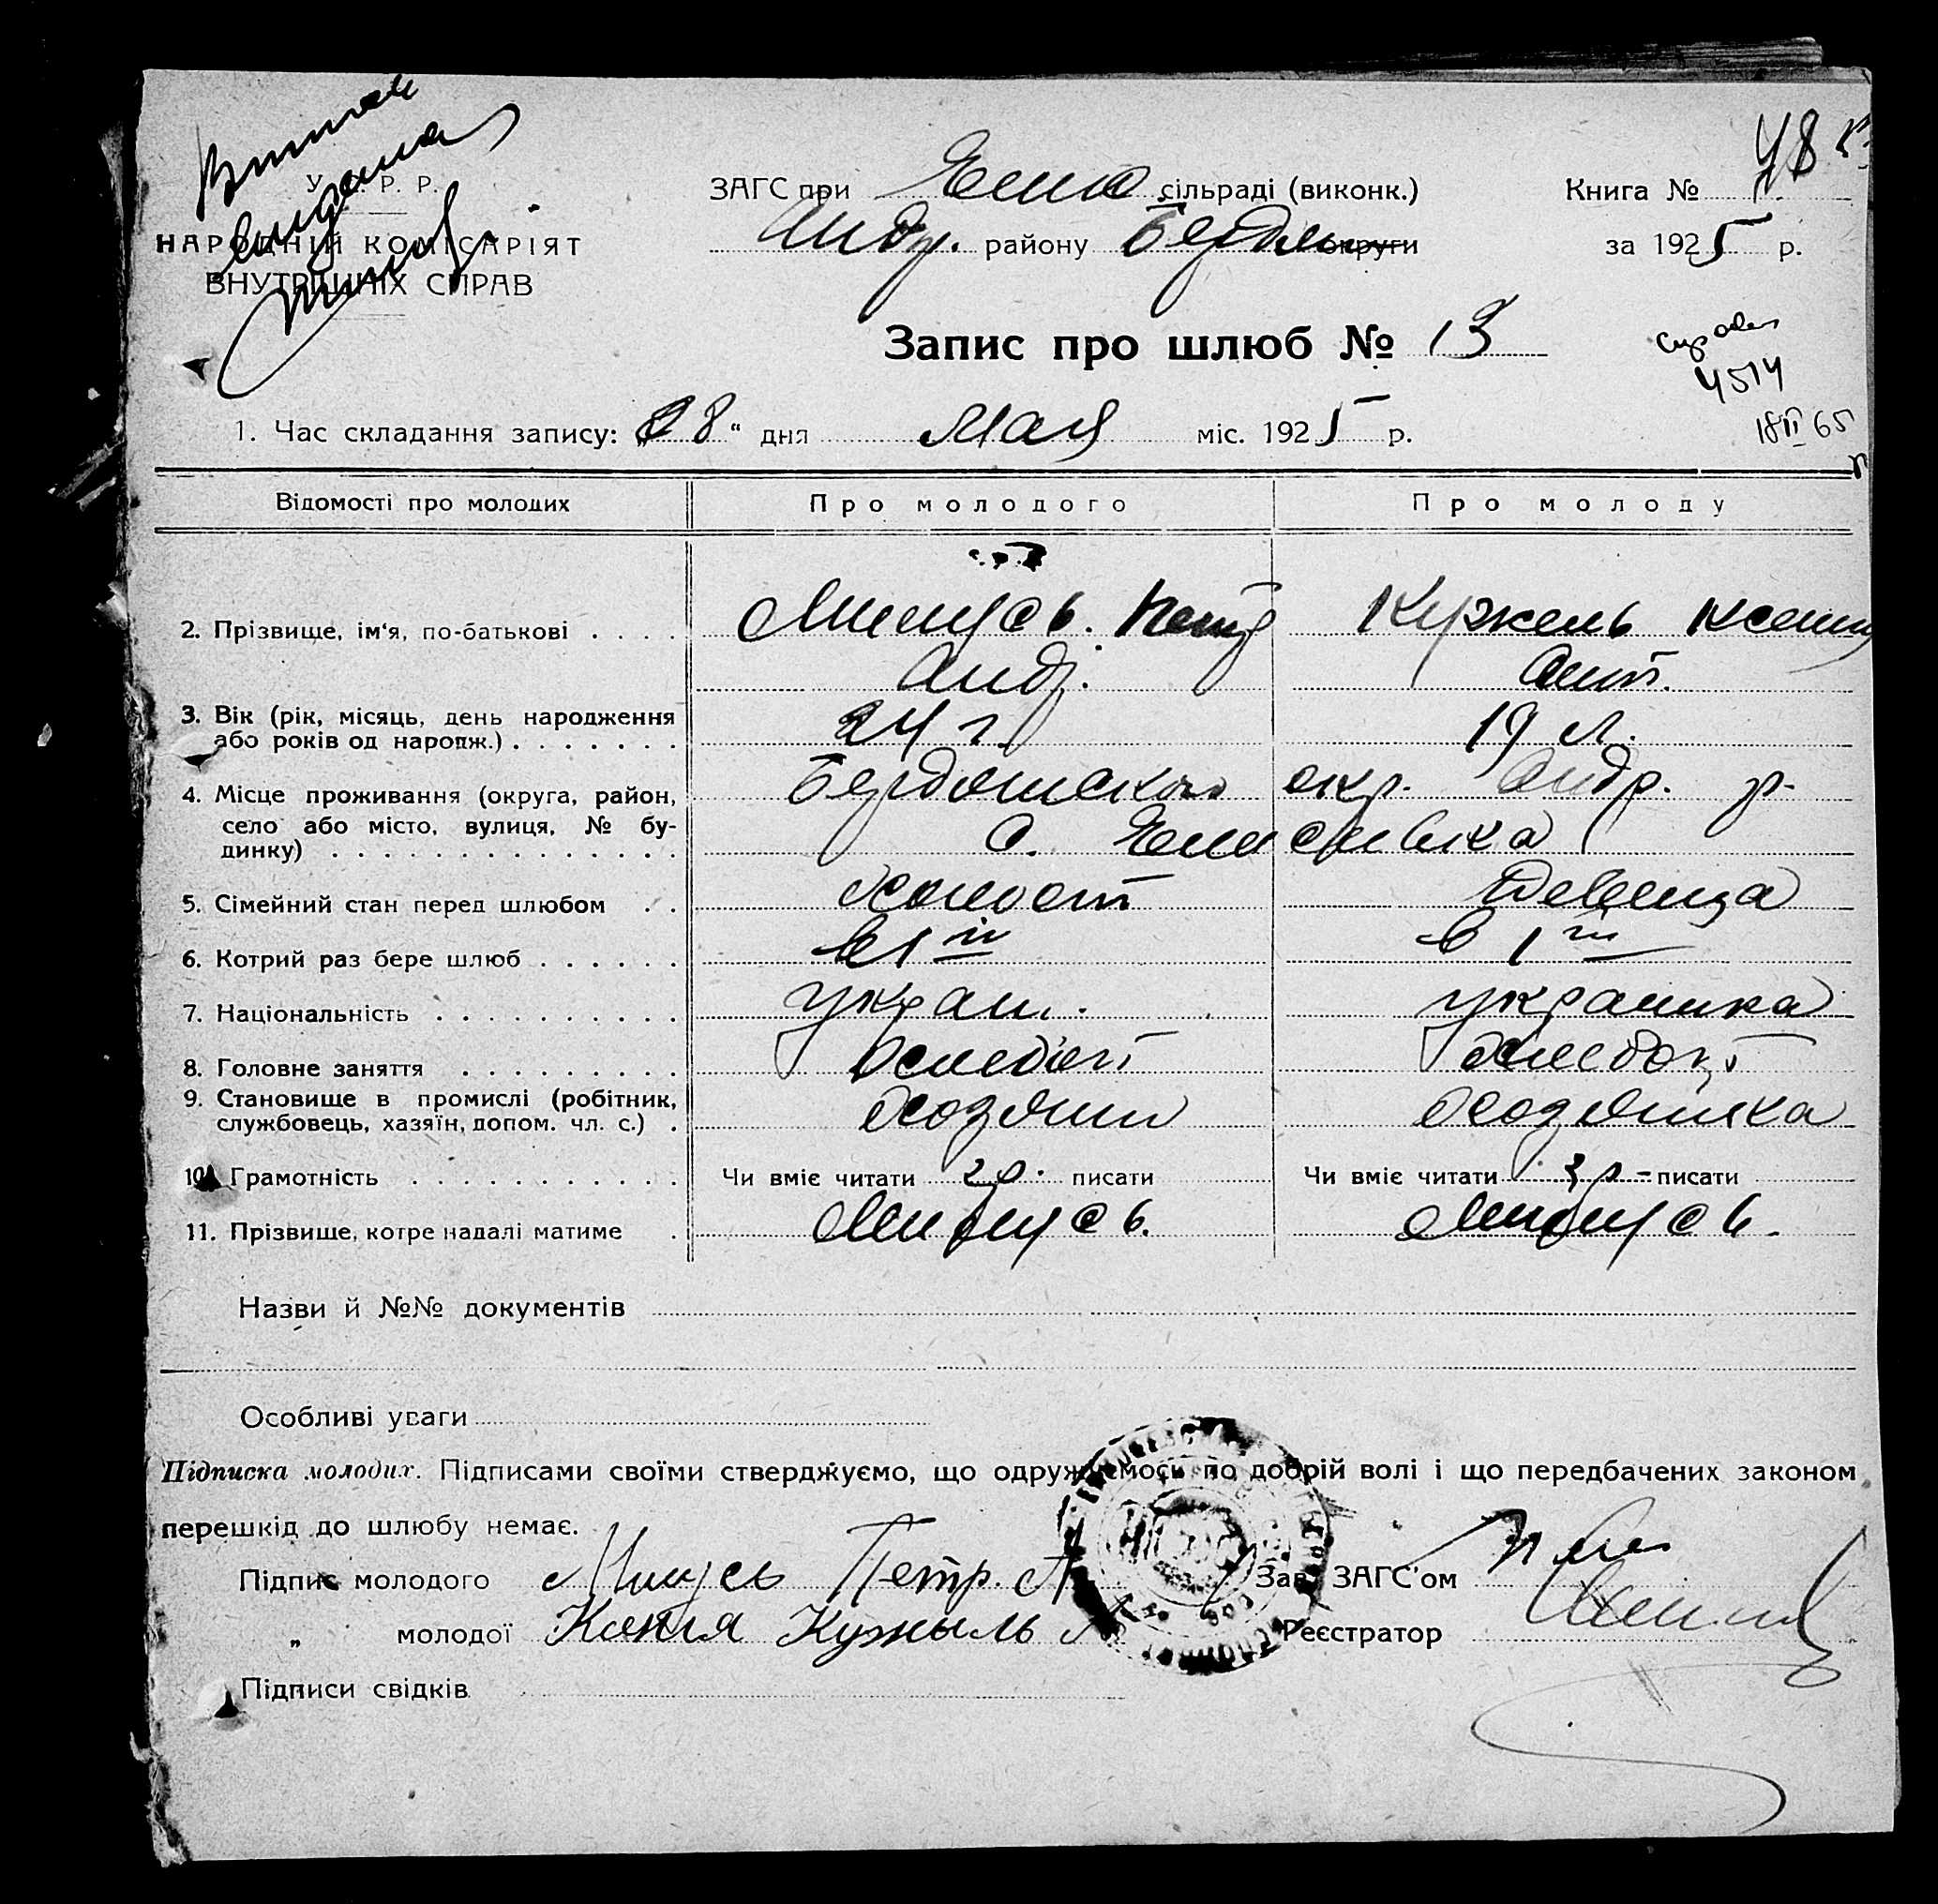 У. С. Р. Р.
НАРОДНІЙ КОМІСАРІЯТ
ВНУТРІШНІХ СПРАВ
ЗАГС при сільраді (виконк.)
Андр. району округи
Книга №
за 1925 р.
Запис про шлюб № 13
4514
18 II 65
1. Час складання запису: " 8 " дня мая міс. 1925 р.
Відомості про молодих Про молодого Про молоду
2. Прізвище, ім'я, по-батькові . . . . Петр Кужель Ксения
Андр. Ант.
3. Вік (рік, місяць, день народження
або років од народж.) . . . . . . . 24 г. 19 л.
4. Місце проживання (округа, район, Бердянского окр. Андр. р.
село або місто, вулиця, № бу- с.
динку) . . . . . . . . . . . . . .
5. Сімейний стан перед шлюбом . . холост девица
6. Котрий раз бере шлюб . . . . . . в 1й в 1й
7. Національність . . . . . . . . . . украин. украинка
8. Головне заняття . . . . . . . . . хлебоп хлебоп
9. Становище в промислі (робітник,
службовець, хазяїн, допом. чл. с.) . хозяин хозяйка
10. Грамотність . . . . . . . . . . . Чи вміє читати гр. писати Чи вміє читати гр. писати
11. Прізвище, котре надалі матиме .
Назви й №№ документів
Особливі уваги
Підписка молодих. Підписами своїми стверджуємо, що одружуємось по добрій волі і що передбачених законом
перешкід до шлюбу немає.
Підпис молодого Мицусь Петр. А Зав. ЗАГС'ом
„ молодої Ксения Кужыль А Реєстратор
Підписи свідків